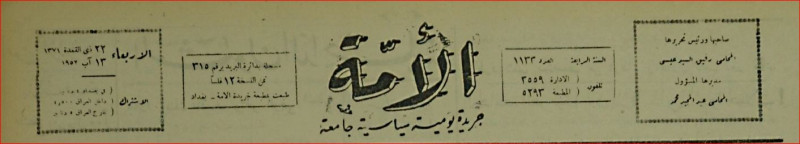 صاحبها ورئيس تحريرها
المحامي رفيق السيد عيسى
مديرها المسؤول
المحامي عبد المجيد محمد
السنة الرابعة العدد ١١٣٣
تلفون ( الادارة ٣٥٥٩
( المطبعة ٥٢٩٣
الأمة
جريدة يومية سياسية جامعة
مسجلة بدائرة البريد برقم ٣١٥
ثمن النسخة ١٢ فلسا
طبعت بمطبعة جريدة الامة - بغداد
الاربعاء
٢٢ ذي القعدة ١٣٧١
١٣ آب ١٩٥٢
الاشتراك